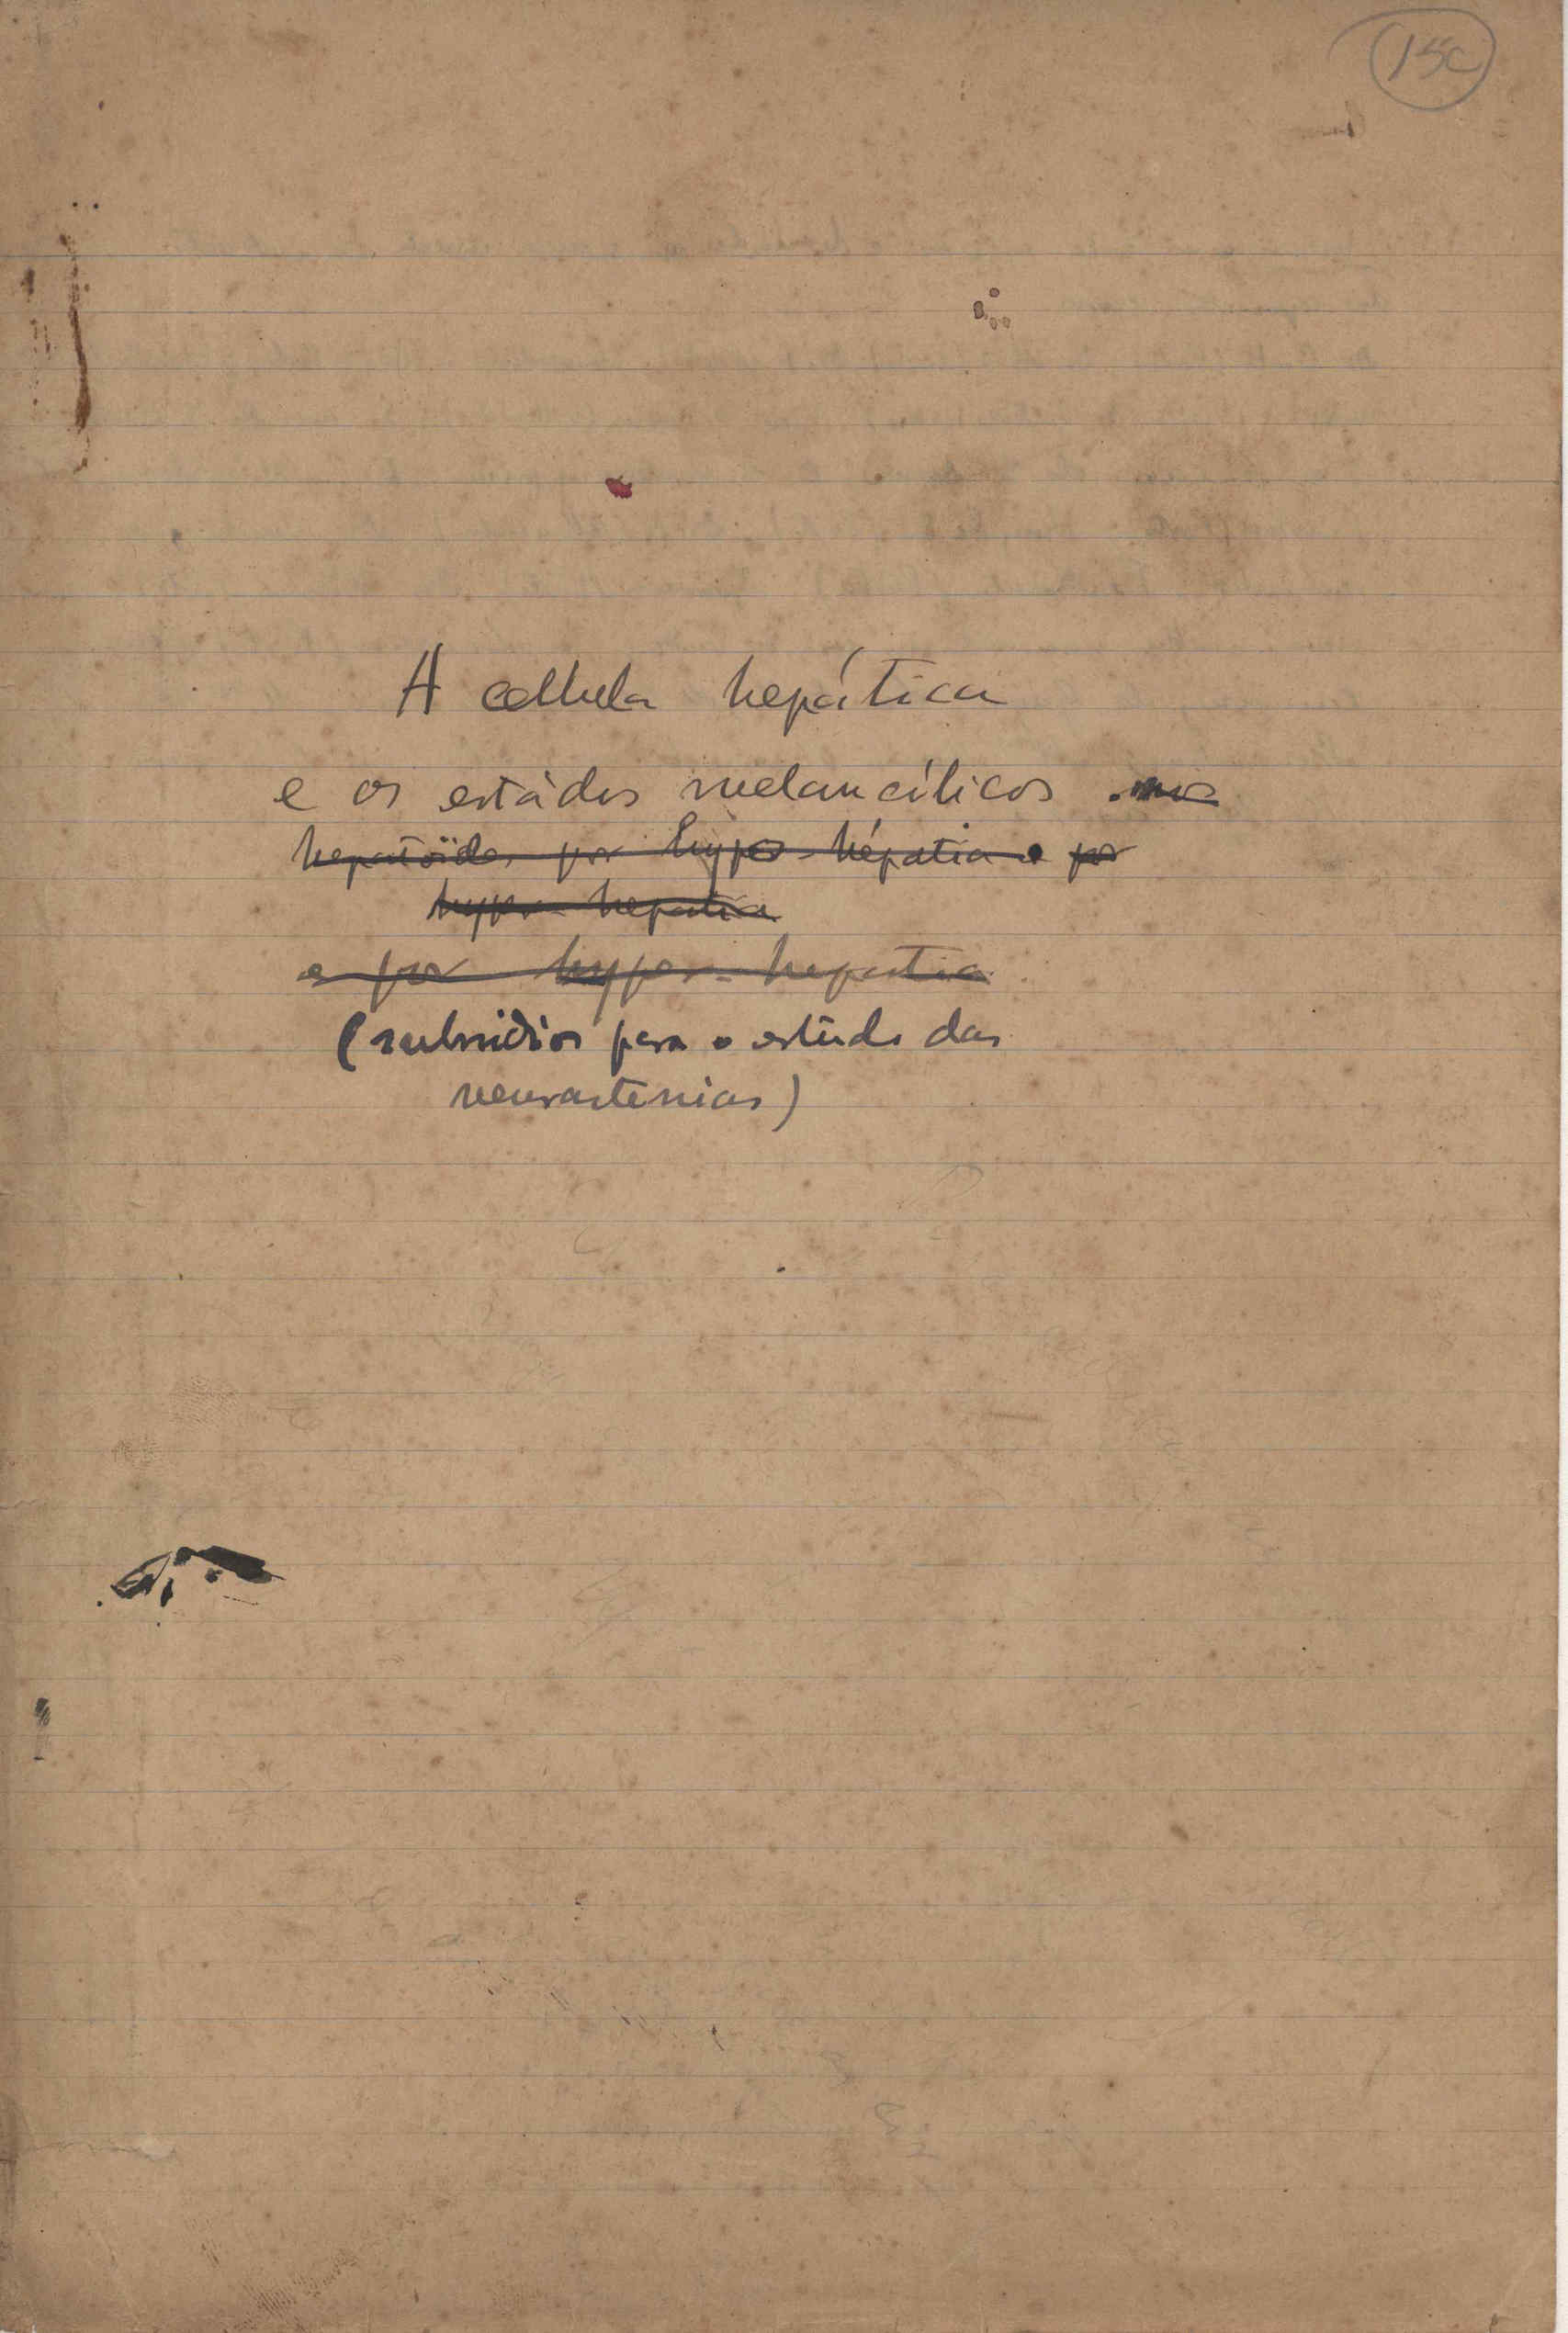 15c
A cellula hepática
e os estádos melancólicos
hepatoïdes por hypo-hépatia e por
hyper-hepatia
e por hyper-hepatia
(subsidios para o estúdo das
neurastenias)